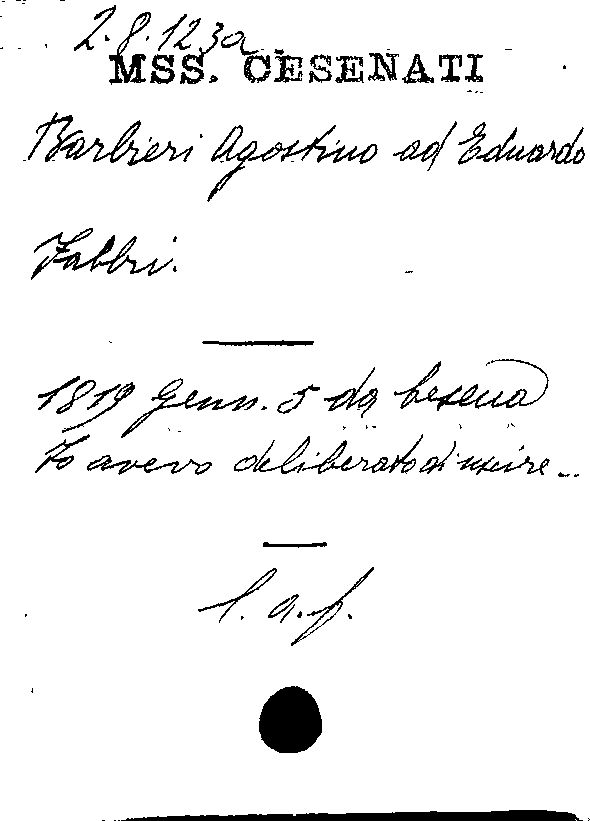 2.8.123a
MSS. CESENATI
Barbieri Agostino ad Eduardo
Fabbri.
1819 Genn. 5 da Cesena
Io avevo deliberato di uscire...
l. a. f.